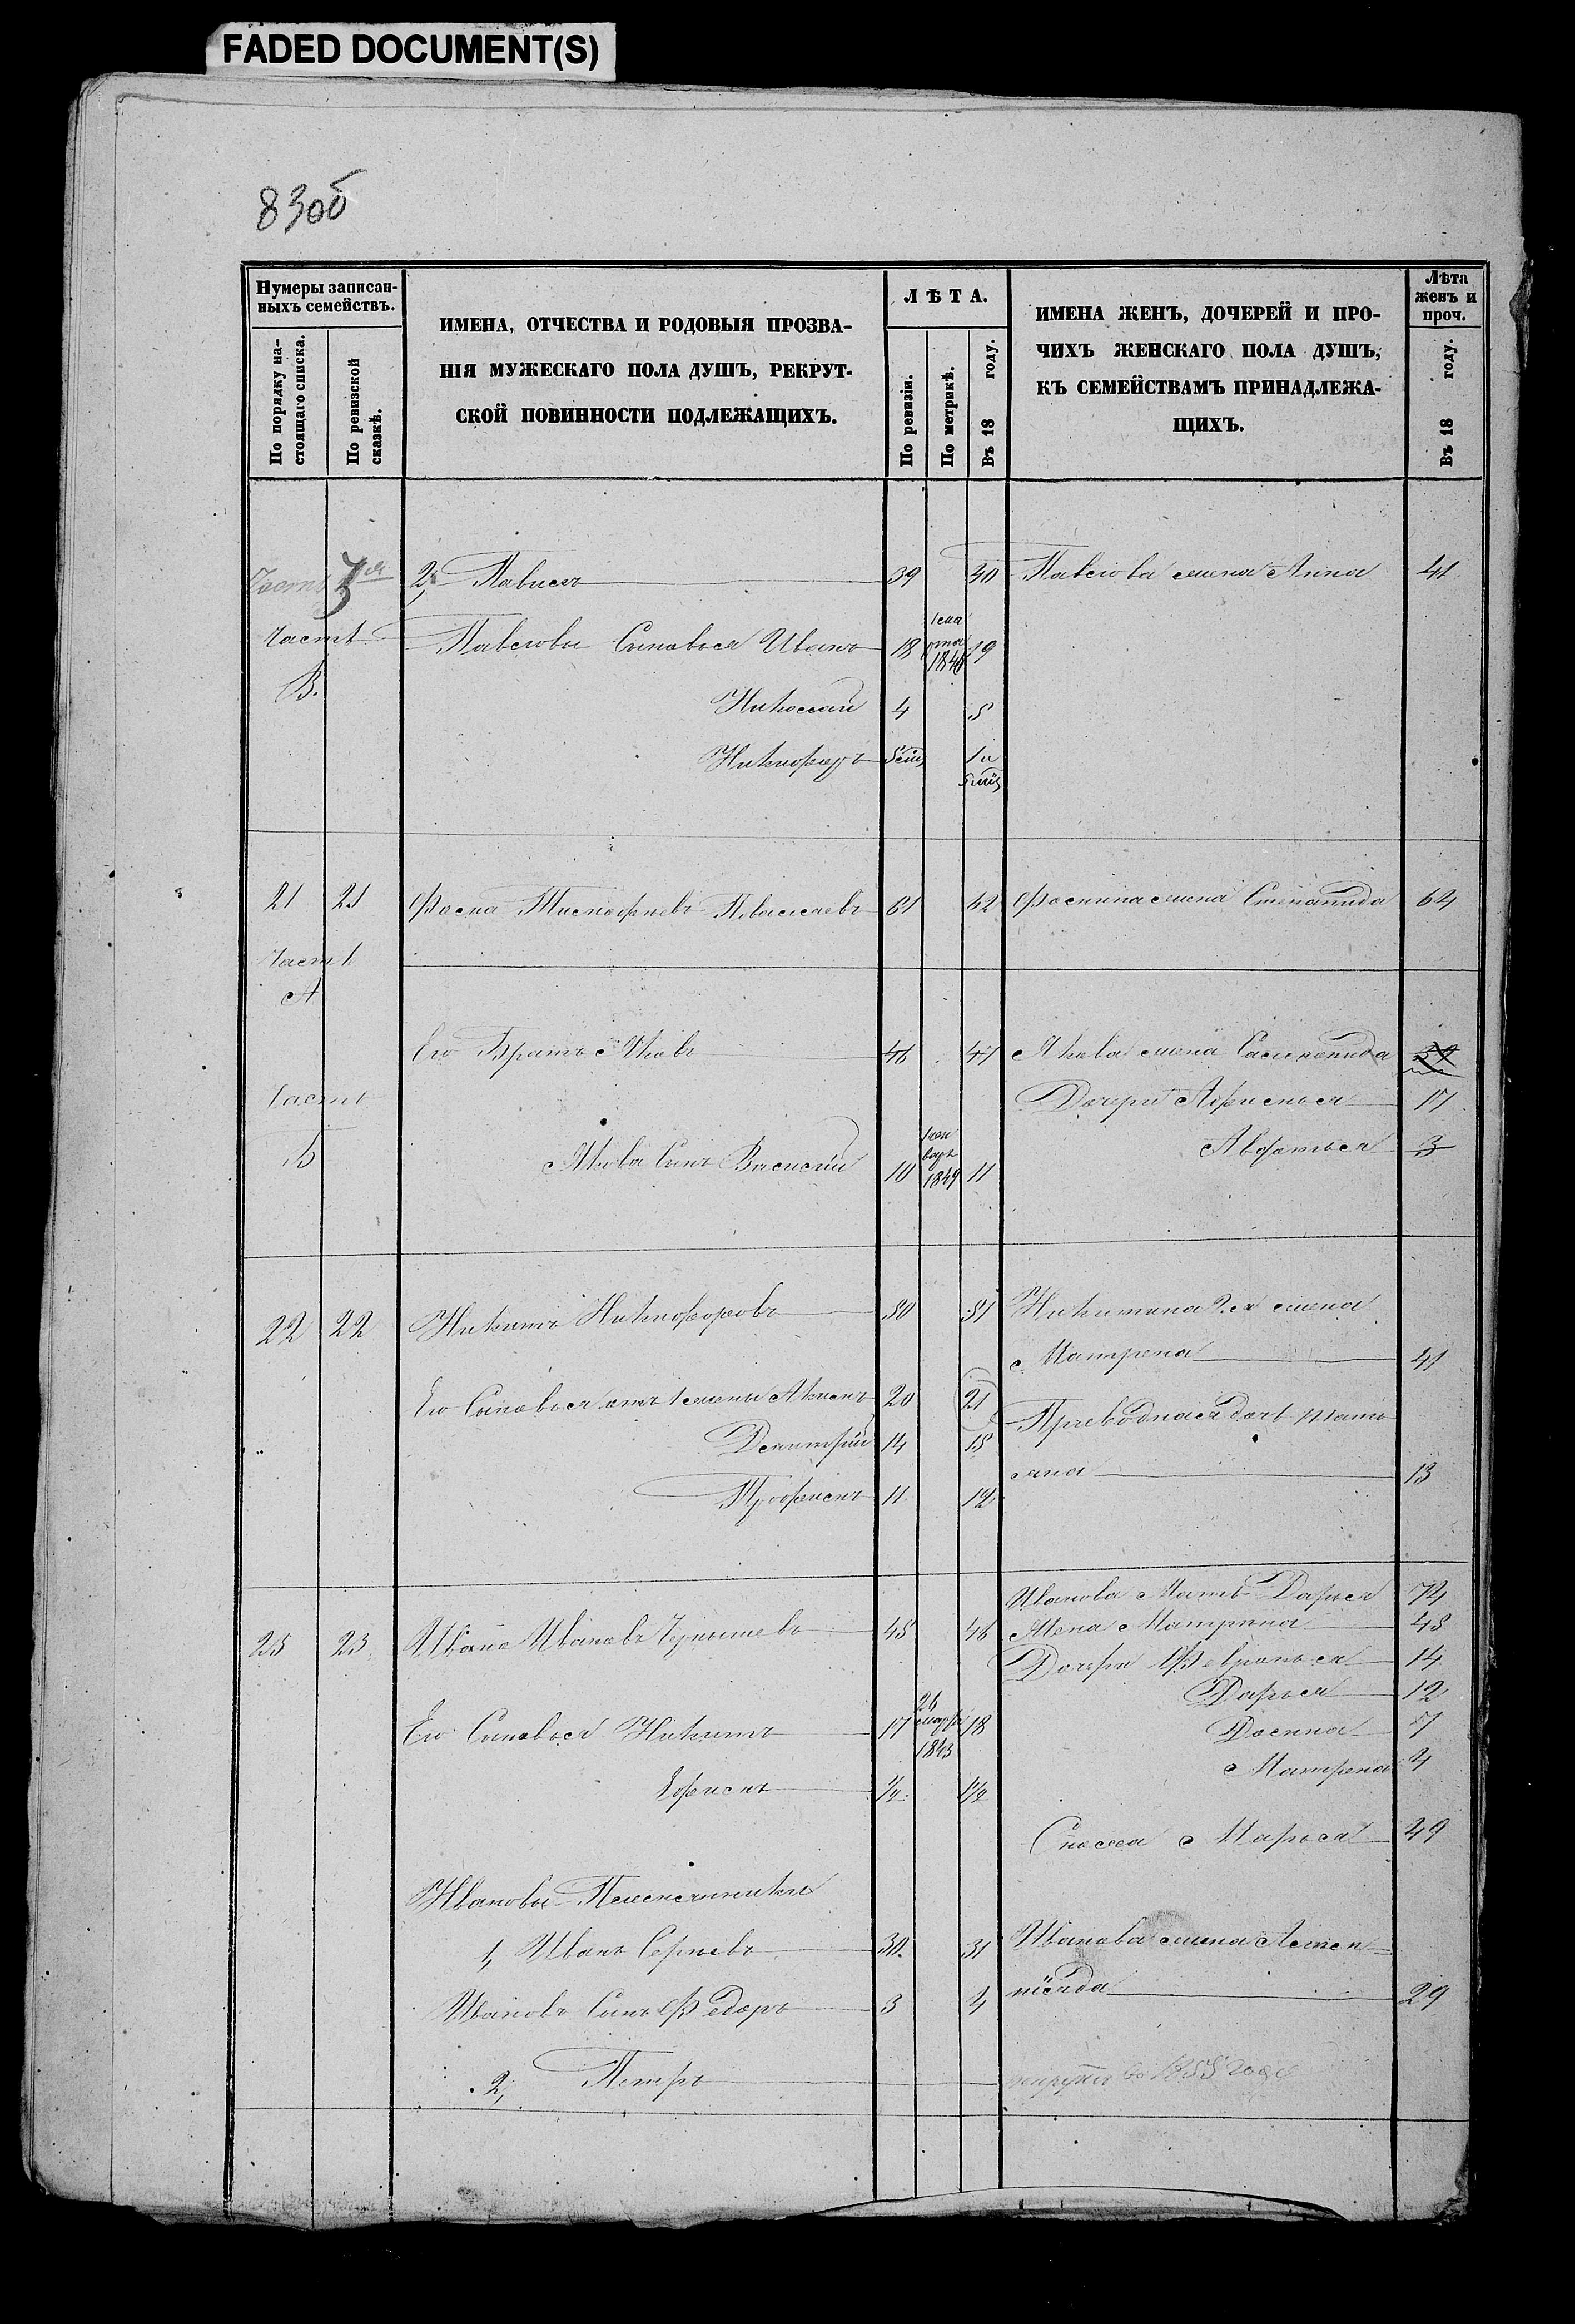 FADED DOCUMENT(S)
83об
Нумеры записан-
ныхъ семействъ.
По порядку на-
стоящаго списка.
По ревизской
сказкѣ.
ИМЕНА, ОТЧЕСТВА И РОДОВЫЯ ПРОЗВА-
НІЯ МУЖЕСКАГО ПОЛА ДУШЪ, РЕКРУТ-
СКОЙ ПОВИННОСТИ ПОДЛЕЖАЩИХЪ.
ЛѢТА.
По ревизіи.
По метрикѣ.
Въ 18 году.
ИМЕНА ЖЕНЪ, ДОЧЕРЕЙ И ПРО-
ЧИХЪ ЖЕНСКАГО ПОЛА ДУШЪ,
КЪ СЕМЕЙСТВАМЪ ПРИНАДЛЕЖА-
ЩИХЪ.
Лѣта
женъ и
проч.
Въ 18 году.
Часть 3я 2, Павелъ 39 40 Павлова жена Анна 41
Часть Павловы Сыновья Иванъ 18 1846 19
В.
Николай 4 5
Никифоръ 5 1 и
21 21 Фома 61 62 Фомина жена Степанида 64
Часть
А
Его Братъ Яковъ 46 47 Якова жена
Дочери 17
Часть
Б Якова Сынъ Василий 10 1849 11 3
22 22 Никита Никифоровъ 50 51 Никитина 2я жена
Матрена 41
Его Сыновья отъ 1 жены 20 21
Приводная дочь Тать
Дмитрий 14 15
яна 13
Трофимъ 11 12
Иванова Мать Дарья 74
23 23 Иванъ Ивановъ Чернышевъ 45 46 Жена Матрена 45
Дочери Февронья 14
Дарья 12
Его Сыновья Никита 17 26 1843 18 Домна 7
Матрена 4
Ефимъ ½ 1½
Сноха Марья 49
Ивановы Племянники
1, Иванъ Сергеевъ 30 31 Иванова жена
29
Ивановъ Сынъ Федоръ 3 4
2, Петръ въ 1855 году